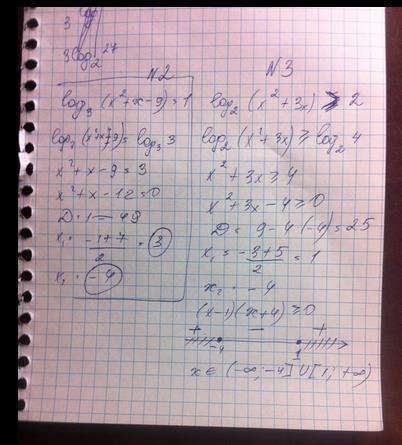 3 log₂ 27
N2
log₃ (x²+x-9)=1
log₃ (x²+x-9)= log₃ 3
x²+x-9=3
x²+x-12=0
D=1 = 49
x₁ = (-1+7)/2 = 3
x₂ = -4
N3
log₂ (x²+3x) ≥ 2
log₂ (x²+3x) ≥ log₂ 4
x²+3x ≥ 4
x²+3x-4 ≥ 0
D = 9-4·(-4)=25
x₁ = (-3+5)/2 = 1
x₂ = -4
(x-1)(x+4) ≥ 0
+ - +
-4 1
x ∈ (-∞; -4] U [1; +∞)